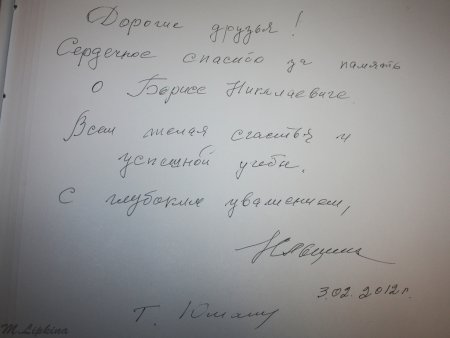 Дорогие друзья!
Сердечное спасибо за память
о Борисе Николаевиче
Всем желая счастья и
успешной учебы.
С глубоким уважением,
3.02.2012 г.
Т.
M.Lipkina